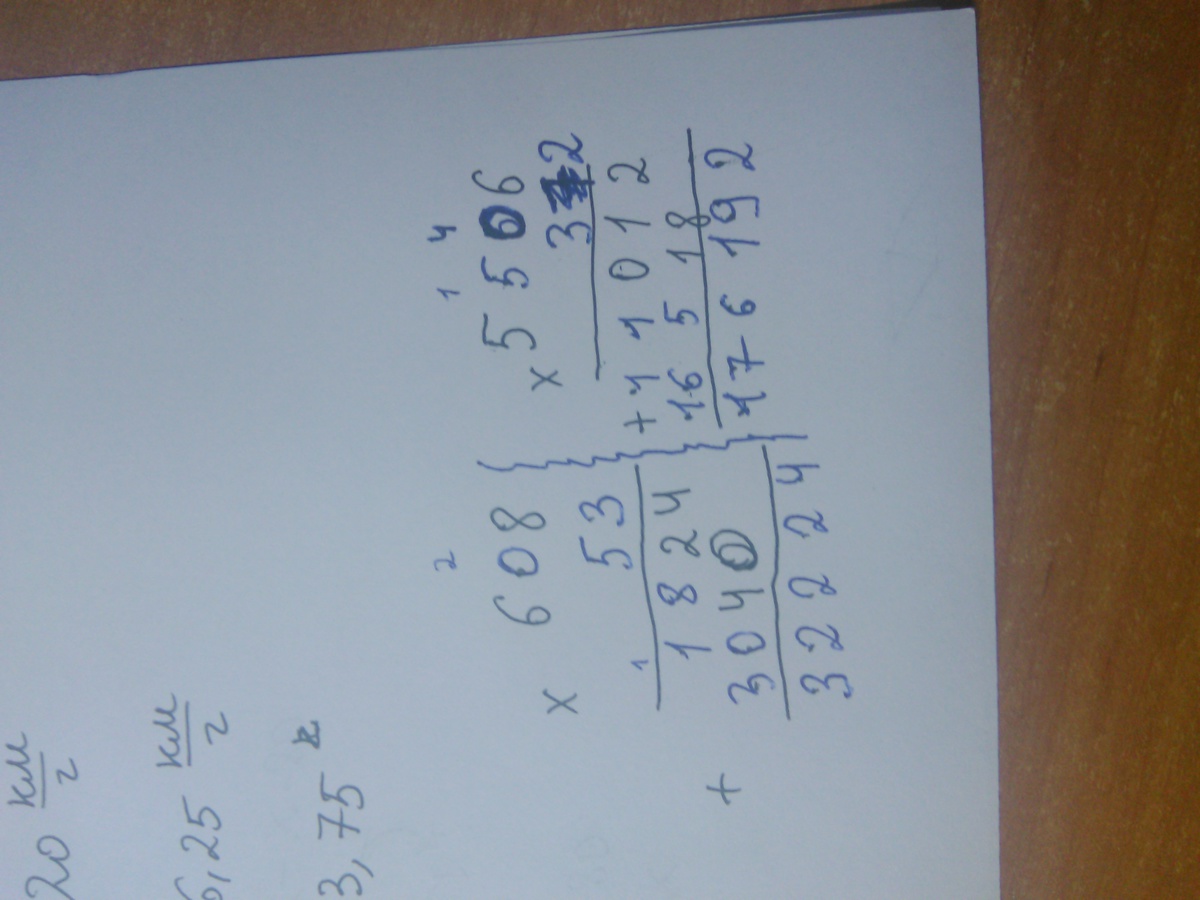 20 км/г
6,25 км/г
3,75
2
× 608
53
1
1824
+ 3040
32224
1 4
× 5506
32
+ 11012
16518
176192